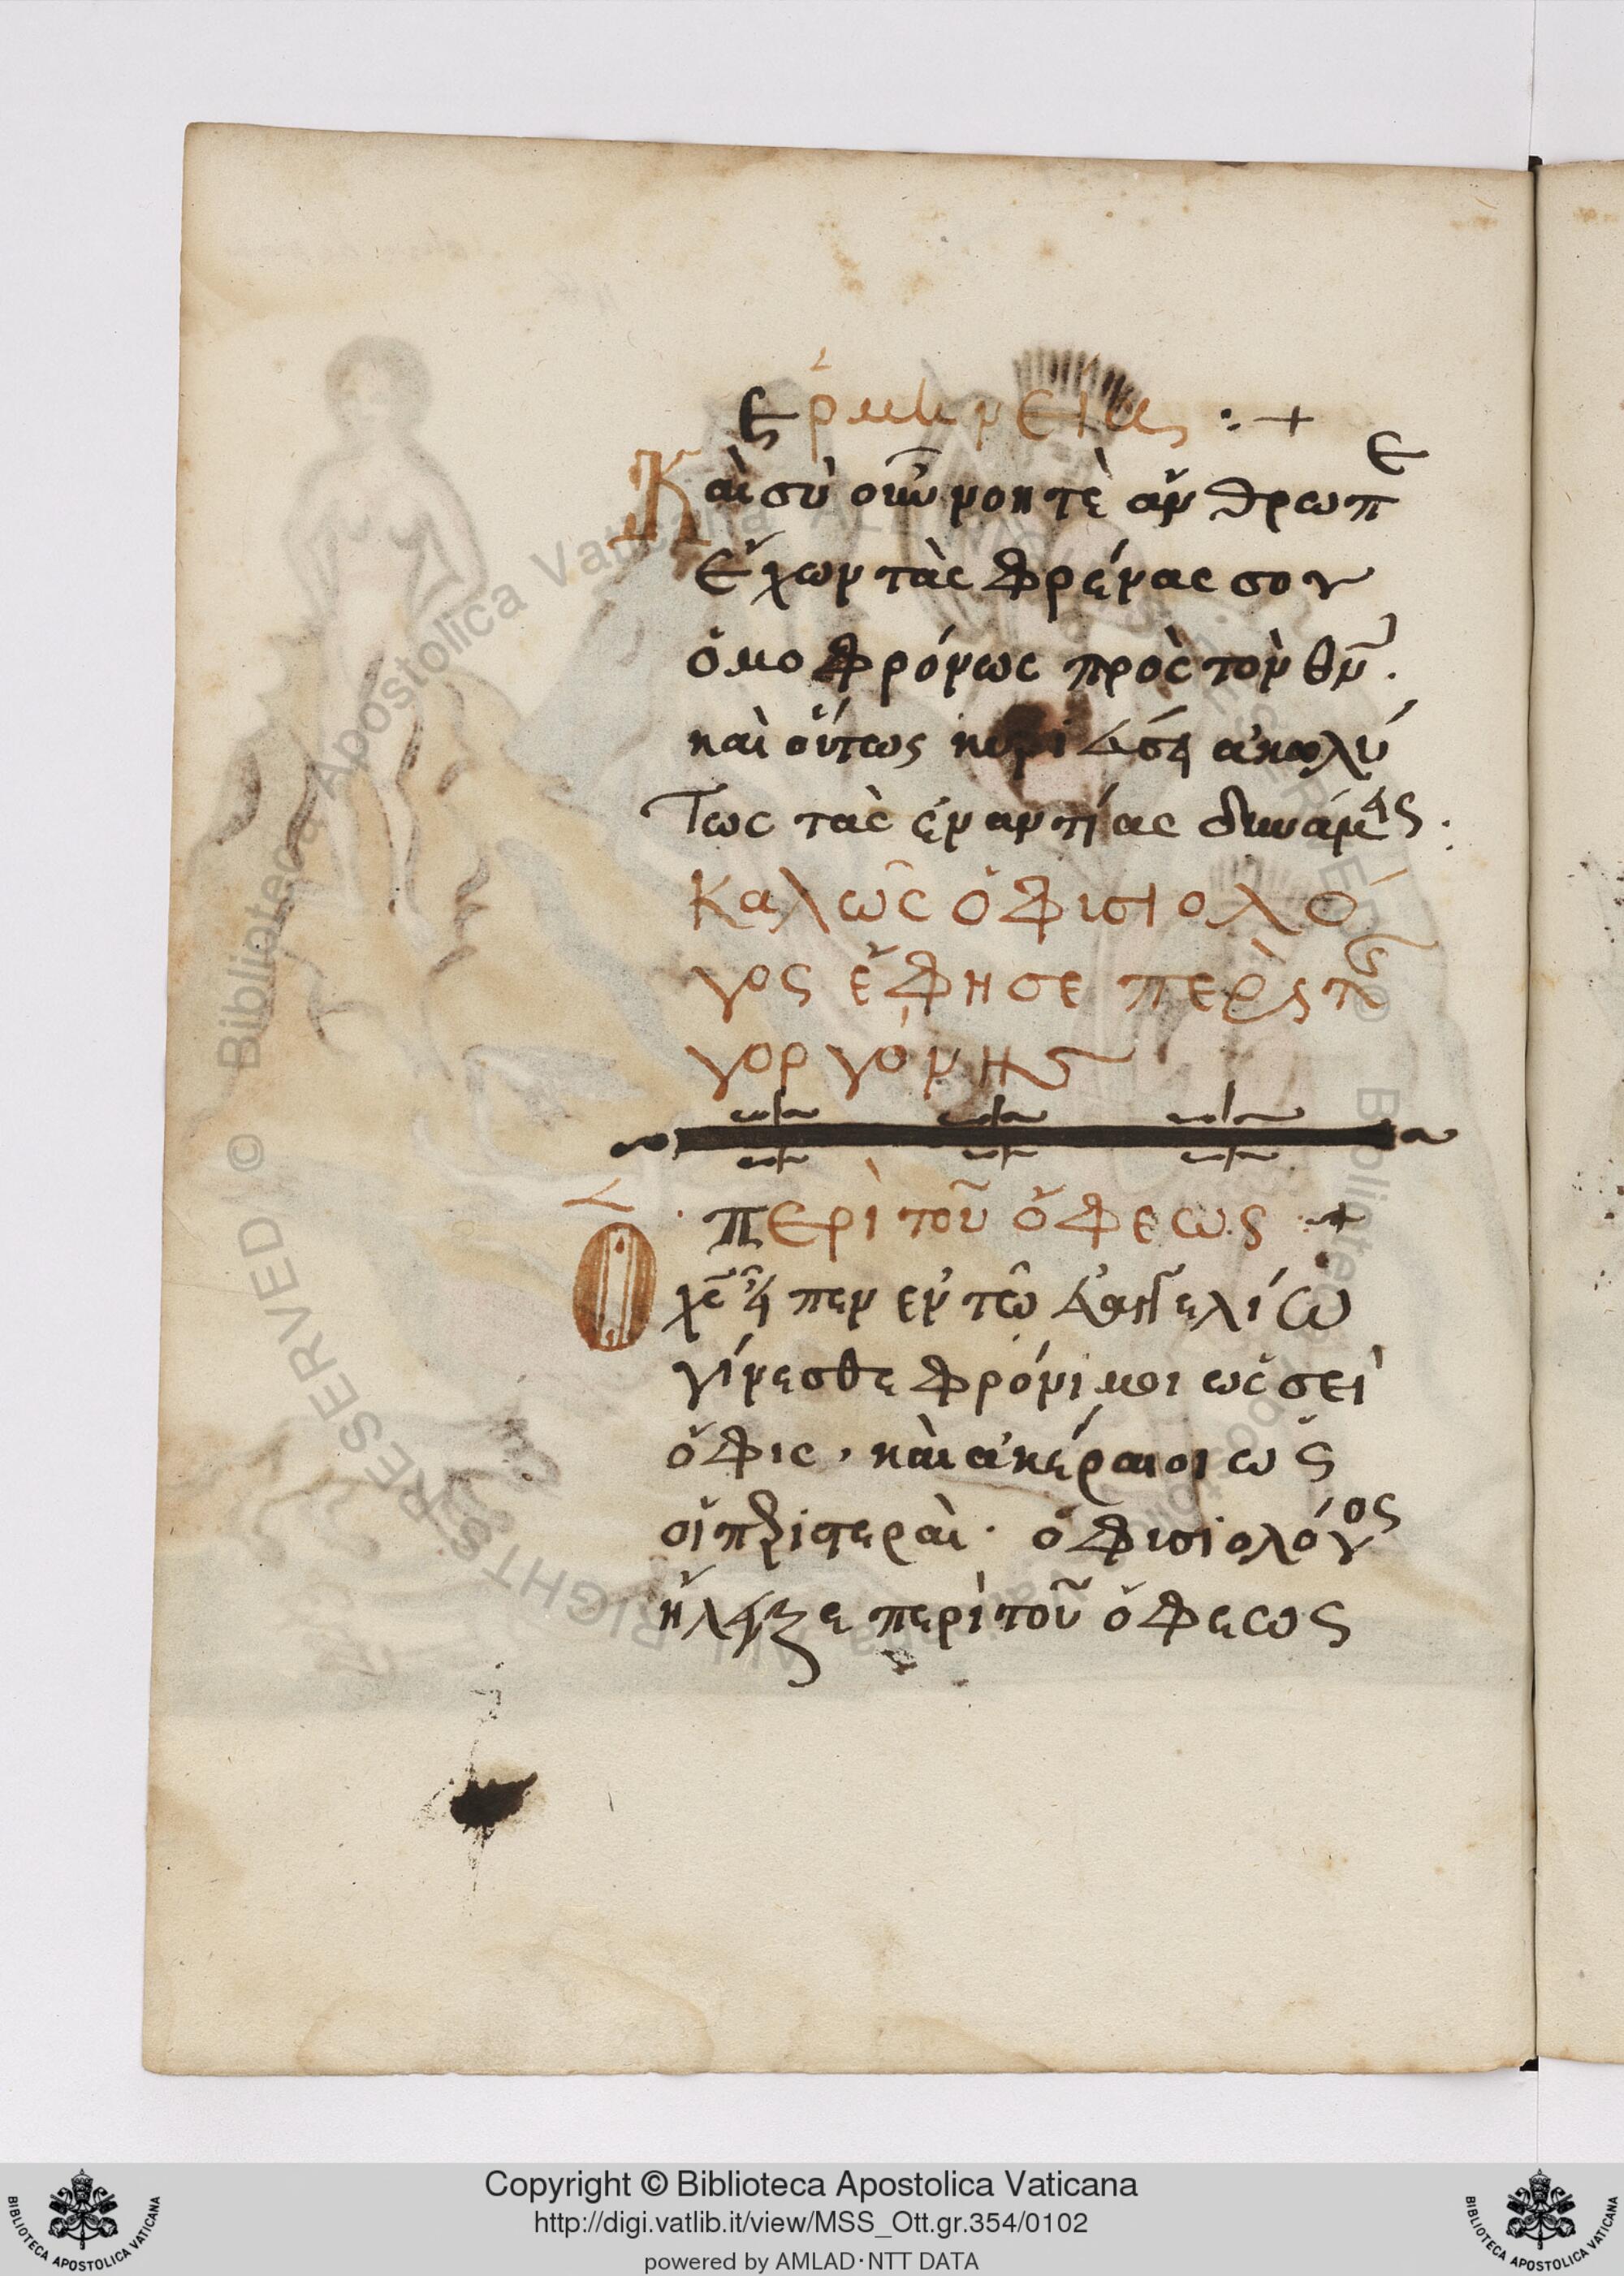 Ερμηνεία :+
Καὶ σὺ οὖν νοητὲ ἄνθρωπε
ἔχων τὰς φρένας σου
ὁμοφρόνως πρὸς τὸν θν̅.
καὶ οὕτως ἀκολύ
τως τὰς ἐναντίας δυνάμεις:
καλῶς ὁ φισιολό
γος ἔφησε περὶ τῆς
γοργόνης
περὶ τοῦ ὄφεως +
Ο χς̅ εἶπεν ἐν τῶ εὐαγγελίω
γίνεσθε φρόνιμοι ὡσεὶ
ὄφις, καὶ ἀκέραιοι ὡς
οἱ περιστεραὶ. ὁ φισιολόγος
ἤλεξε περὶ τοῦ ὄφεως
Biblioteca Apostolica Vaticana ALL RIGHTS RESERVED ©
Copyright © Biblioteca Apostolica Vaticana
http://digi.vatlib.it/view/MSS_Ott.gr.354/0102
powered by AMLAD·NTT DATA
BIBLIOTECA APOSTOLICA VATICANA
BIBLIOTECA APOSTOLICA VATICANA